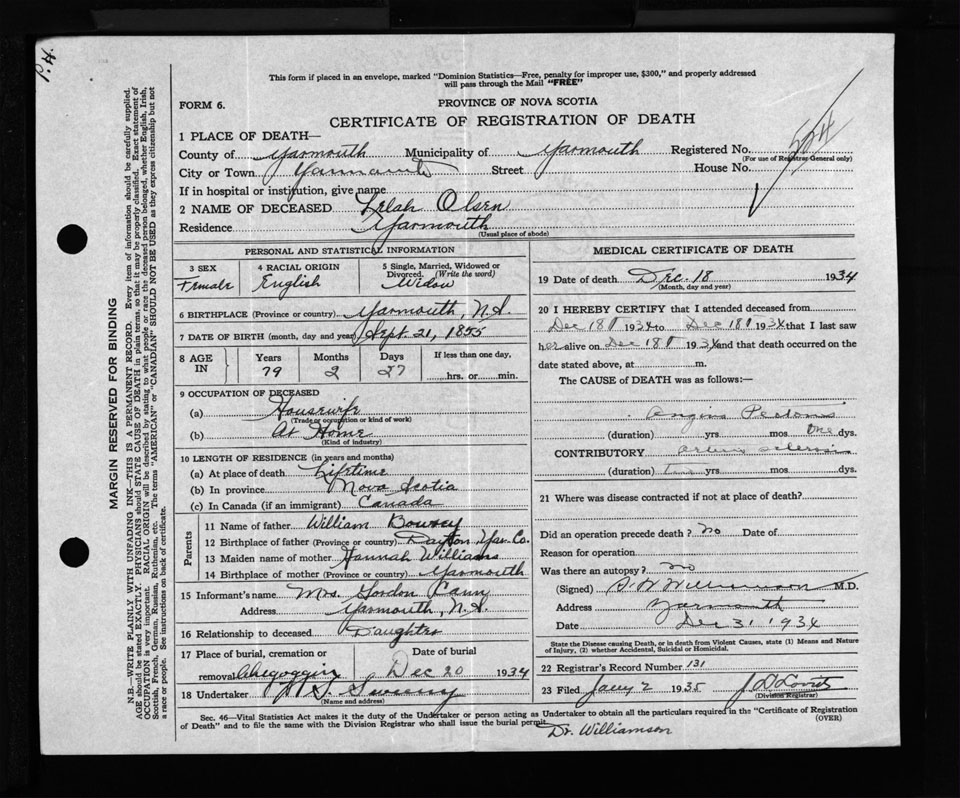 P.H.
This form if placed in an envelope, marked "Dominion Statistics—Free, penalty for improper use, $300," and properly addressed
will pass through the Mail "FREE"
FORM 6.
PROVINCE OF NOVA SCOTIA
CERTIFICATE OF REGISTRATION OF DEATH
1 PLACE OF DEATH—
County of Yarmouth Municipality of Yarmouth Registered No.
(For use of Registrar General only)
City or Town Yarmouth Street House No.
If in hospital or institution, give name
2 NAME OF DECEASED Lelah Olsen
Residence Yarmouth
(Usual place of abode)
PERSONAL AND STATISTICAL INFORMATION
3 SEX Female
4 RACIAL ORIGIN English
5 Single, Married, Widowed or Divorced. (Write the word) Widow
6 BIRTHPLACE (Province or country) Yarmouth, N.S.
7 DATE OF BIRTH (month, day and year) Sept. 21, 1855
8 AGE IN Years 79 Months 2 Days 27 If less than one day, hrs. or min.
9 OCCUPATION OF DECEASED
(a) Housewife
(Trade or occupation or kind of work)
(b) At Home
(Kind of industry)
10 LENGTH OF RESIDENCE (in years and months)
(a) At place of death Lifetime
(b) In province Nova Scotia
(c) In Canada (if an immigrant) Canada
Parents
11 Name of father William Bowsey
12 Birthplace of father (Province or country) Dayton Yar. Co.
13 Maiden name of mother Hannah Williams
14 Birthplace of mother (Province or country) Yarmouth
15 Informant's name Mrs. Gordon Cann
Address Yarmouth, N.S.
16 Relationship to deceased Daughter
17 Place of burial, cremation or removal Chegoggin
Date of burial Dec 20 1934
18 Undertaker Sweeny
(Name and address)
MEDICAL CERTIFICATE OF DEATH
19 Date of death Dec. 18 1934
(Month, day and year)
20 I HEREBY CERTIFY that I attended deceased from
Dec 18 1934 to Dec 18 1934 that I last saw
her alive on Dec 18 1934 and that death occurred on the
date stated above, at m.
The CAUSE of DEATH was as follows:—
Angina Pectoris
(duration) yrs mos One dys.
CONTRIBUTORY arterio sclerosis
(duration) yrs mos. dys.
21 Where was disease contracted if not at place of death?
Did an operation precede death? No Date of
Reason for operation
Was there an autopsy? No
(Signed) Williamson M.D.
Address Yarmouth
Date Dec 31 1934
State the Disease causing Death, or in death from Violent Causes, state (1) Means and Nature
of Injury, (2) whether Accidental, Suicidal or Homicidal.
22 Registrar's Record Number 131
23 Filed Jany 2 1935
(Division Registrar)
Sec. 46—Vital Statistics Act makes it the duty of the Undertaker or person acting as Undertaker to obtain all the particulars required in the "Certificate of Registration
of Death" and to file the same with the Division Registrar who shall issue the burial permit. (OVER)
Dr. Williamson
MARGIN RESERVED FOR BINDING
N.B.—WRITE PLAINLY WITH UNFADING INK—THIS IS A PERMANENT RECORD. Every item of information should be carefully supplied.
AGE should be stated EXACTLY. PHYSICIANS should STATE CAUSE OF DEATH in plain terms, so that it may be properly classified. Exact statement of
OCCUPATION is very important. RACIAL ORIGIN will be described by stating to what people or race the deceased person belonged, whether English, Irish,
Scottish, French, German, Russian, Ruthenian, etc. The terms "AMERICAN" or "CANADIAN" SHOULD NOT BE USED as they express citizenship but not
a race or people. See instructions on back of certificate.